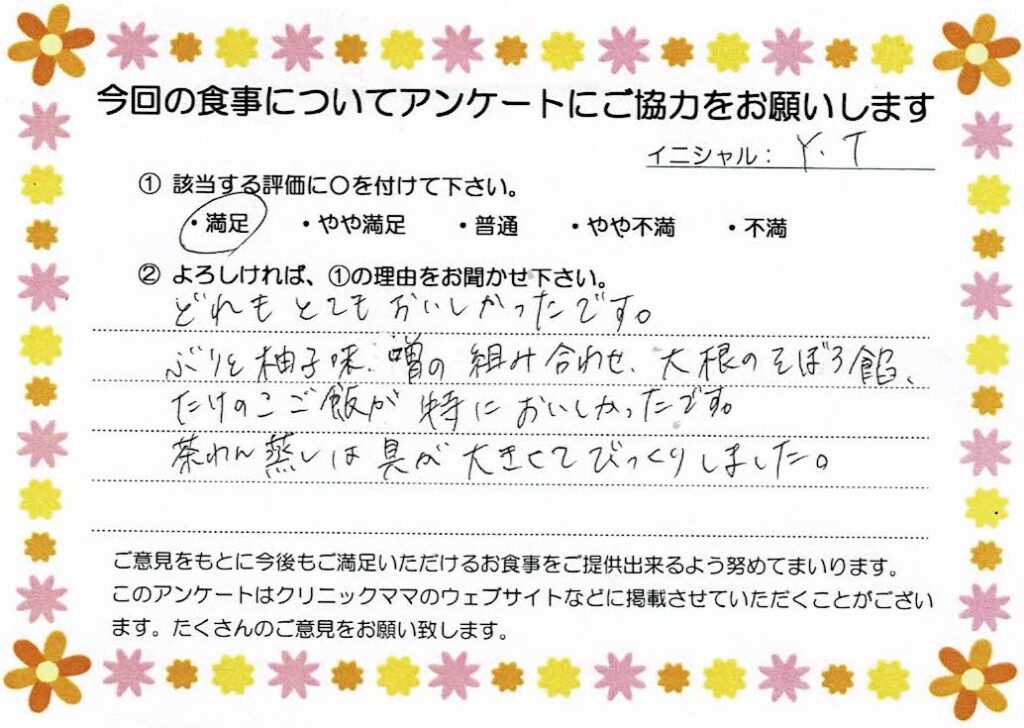 今回の食事についてアンケートにご協力をお願いします
イニシャル： Y.T
① 該当する評価に〇を付けて下さい。
・満足 ・やや満足 ・普通 ・やや不満 ・不満
② よろしければ、①の理由をお聞かせ下さい。
どれもとてもおいしかったです。
ぶりと柚子味噌の組み合わせ、大根のそぼろ餡、
たけのこご飯が特においしかったです。
茶わん蒸しは具が大きくてびっくりしました。
ご意見をもとに今後もご満足いただけるお食事をご提供出来るよう努めてまいります。
このアンケートはクリニックママのウェブサイトなどに掲載させていただくことがござい
ます。たくさんのご意見をお願い致します。